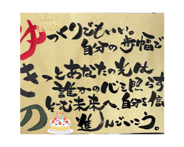 ゆっくりでもいい。
自分の歩幅で
きっとあなたの光は
誰かの心を照らす
の 未来へ 自分を信
進んでいこう。